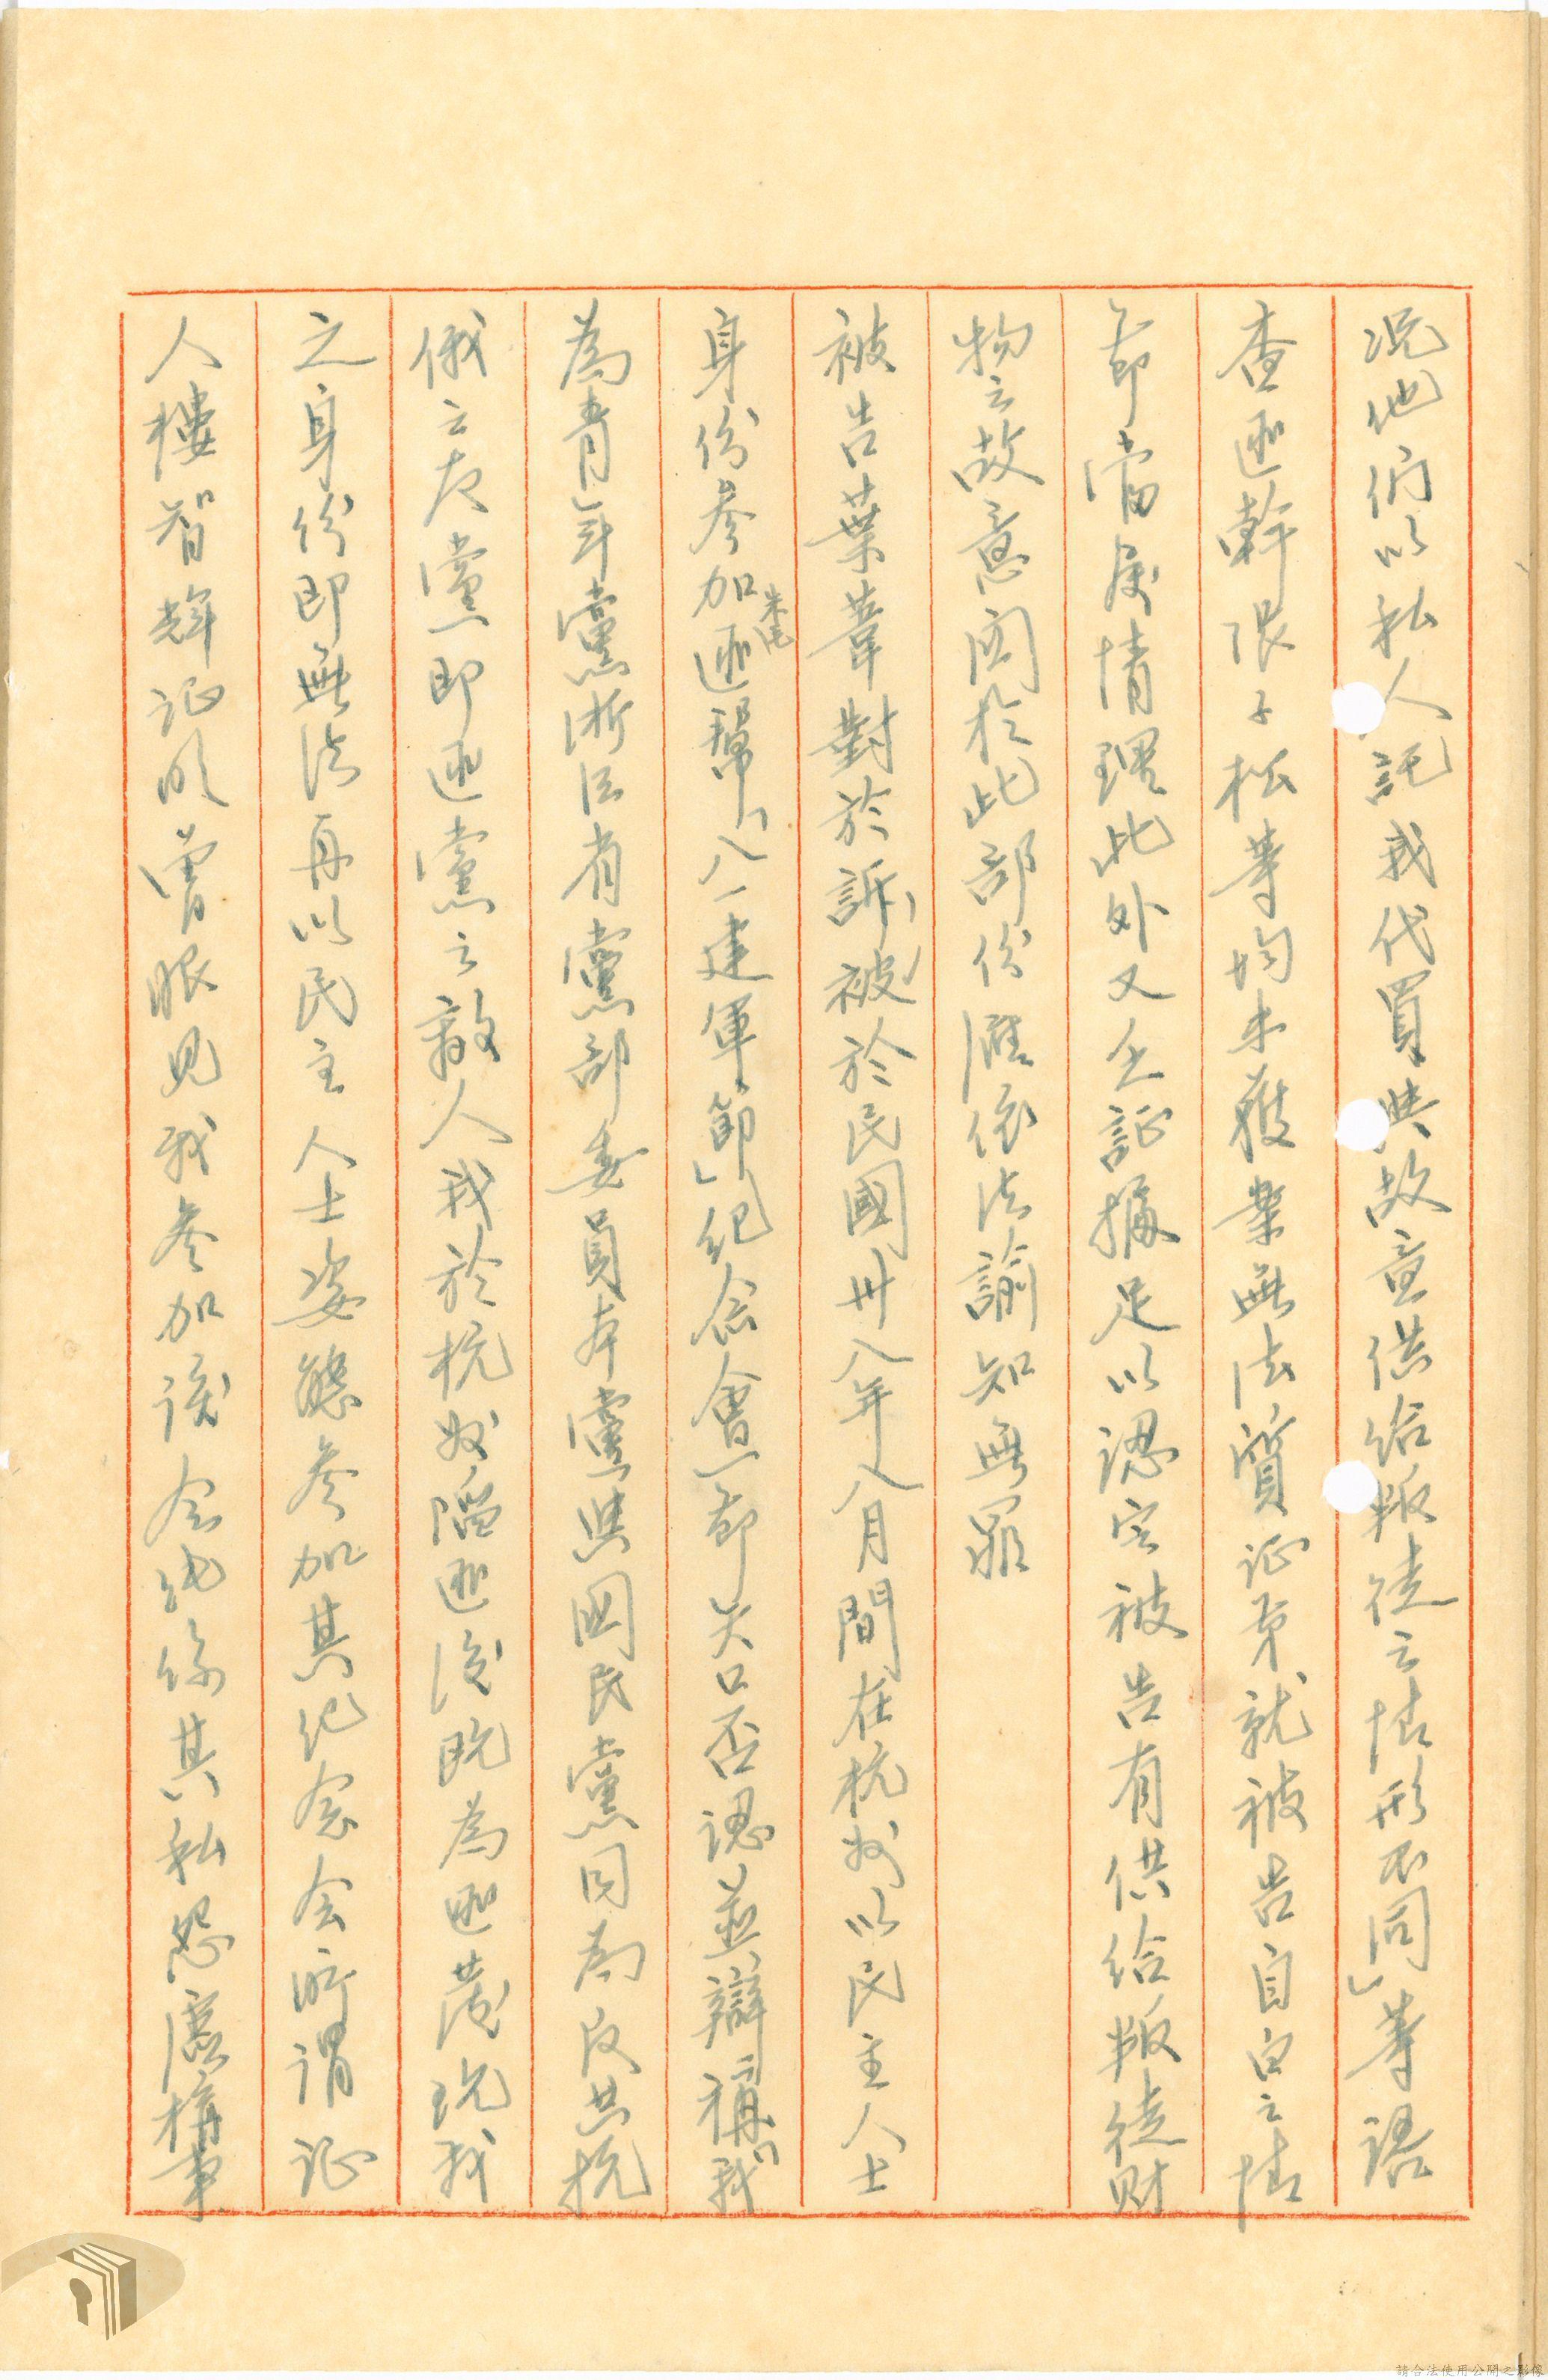 況他們以私人託我代買與故意供給叛徒之情形不同」等語
查匪幹張子松等均未獲案無法質証第就被告自白之情
節當屬情理此外又乏証據足以認定被告有供給叛徒財
物之故意関於此部份應依法諭知無罪
被告葉葦對於訴被於民國卅八年八月間在杭州以民主人士
身份參加朱毛匪幫「八一建軍節」紀念會一節矢口否認並辯稱「我
為青年黨浙江省黨部委員本黨與國民黨同為反共抗
俄之友黨即匪黨之敵人我於杭州陷匪後既為匪黨玩我
之身份即無法再以民主人士姿態參加其紀念会所謂証
人樓智輝証明曾眼見我參加該会純係其私怨虛構事
請合法使用公開之影像